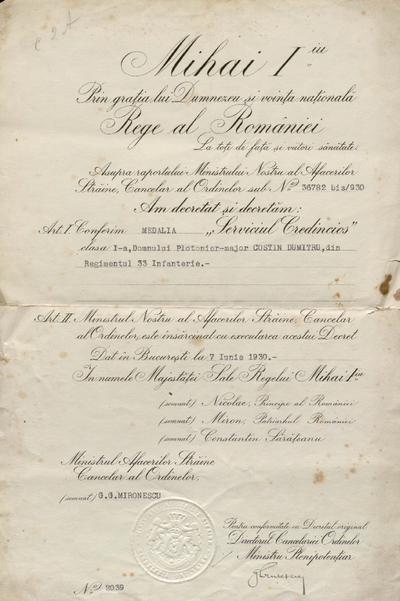 C 2 A
Mihai I iu
Prin grația lui Dumnezeu și voința națională
Rege al României
La toți de față și viitori sănătate:
Asupra raportului Ministrului Nostru al Afacerilor
Străine, Cancelar al Ordinelor sub No 36782 bis/930
Am decretat și decretăm:
Art. I Conferim MEDALIA „Serviciul Credincios"
clasa I-a, Domnului Plotonier-major COSTIN DUMITRU, din
Regimentul 33 Infanterie.-
Art. II. Ministrul Nostru al Afacerilor Străine, Cancelar
al Ordinelor, este însărcinat cu executarea acestui Decret
Dat în București la 7 Iunie 1930.-
In numele Majestăței Sale Regelui Mihai I iu
(semnat) Nicolae, Principe al României
(semnat) Miron, Patriarhul României
(semnat) Constantin Sărățeanu
Ministrul Afacerilor Străine
Cancelar al Ordinelor,
(semnat) G.G.MIRONESCU
Pentru conformitate cu Decretul original
Directorul Cancelariei Ordinelor
Ministru Plenipotențiar
No 2039